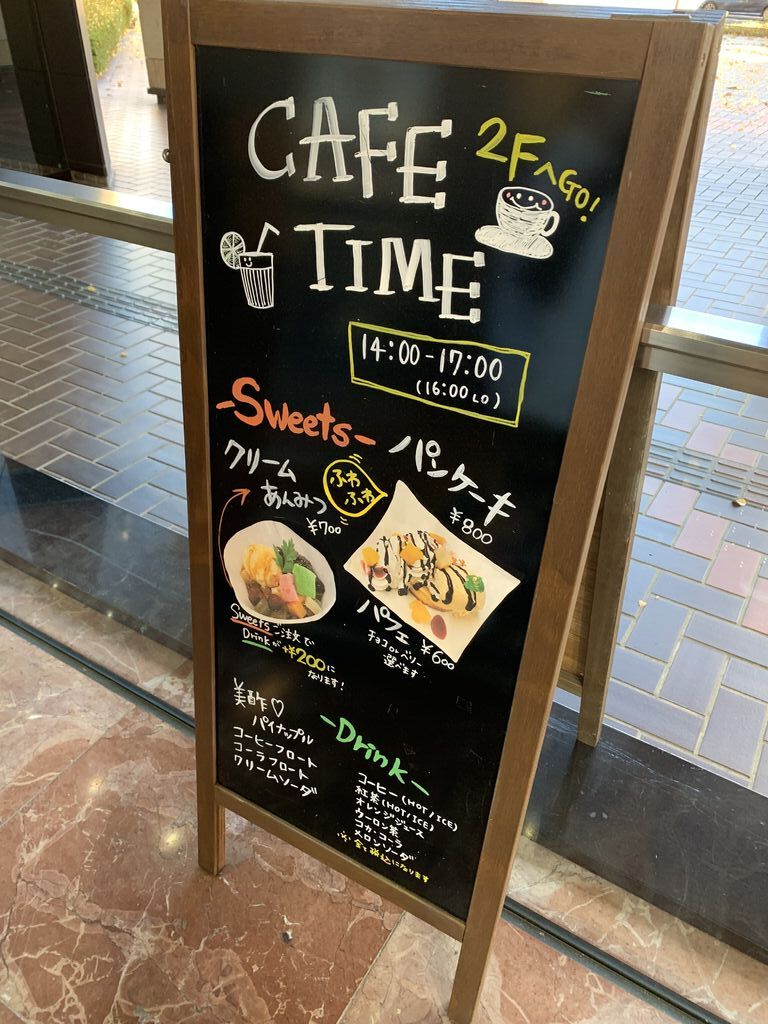 CAFE
TIME
2FへGO!
14:00-17:00
(16:00 LO)
-Sweets-
クリーム
あんみつ
¥700
ふわ
ふわ
パンケーキ
¥800
パフェ ¥600
チョコorベリー
選べます
Sweetsご注文で
Drinkが+¥200に
なります!
美酢♡
パイナップル
コーヒーフロート
コーラフロート
クリームソーダ
-Drink-
コーヒー(HOT/ICE)
紅茶(HOT/ICE)
オレンジジュース
ウーロン茶
コカ・コーラ
メロンソーダ
※全て税込になります